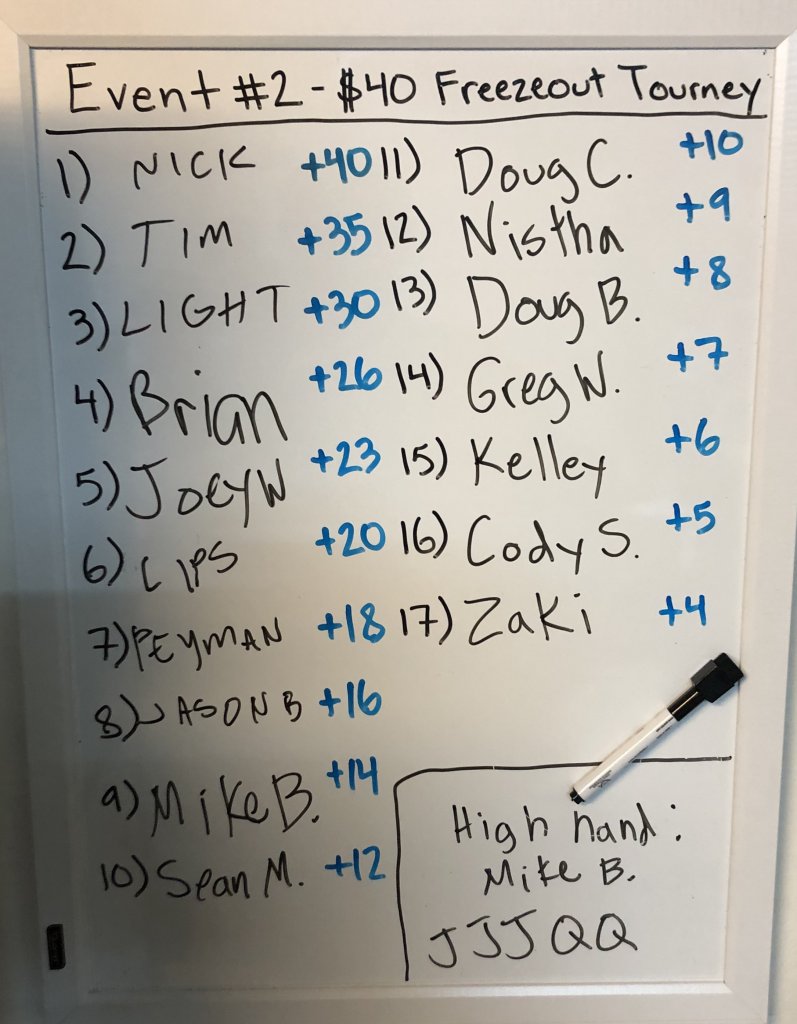 Event #2 - $40 Freezeout Tourney
1) NICK +40
2) TIM +35
3) LIGHT +30
4) Brian +26
5) Joey W +23
6) LIPS +20
7) PEYMAN +18
8) JASON B +16
9) Mike B. +14
10) Sean M. +12
11) Doug C. +10
12) Nistha +9
13) Doug B. +8
14) Greg W. +7
15) Kelley +6
16) Cody S. +5
17) Zaki +4
High hand:
Mike B.
JJJQQ